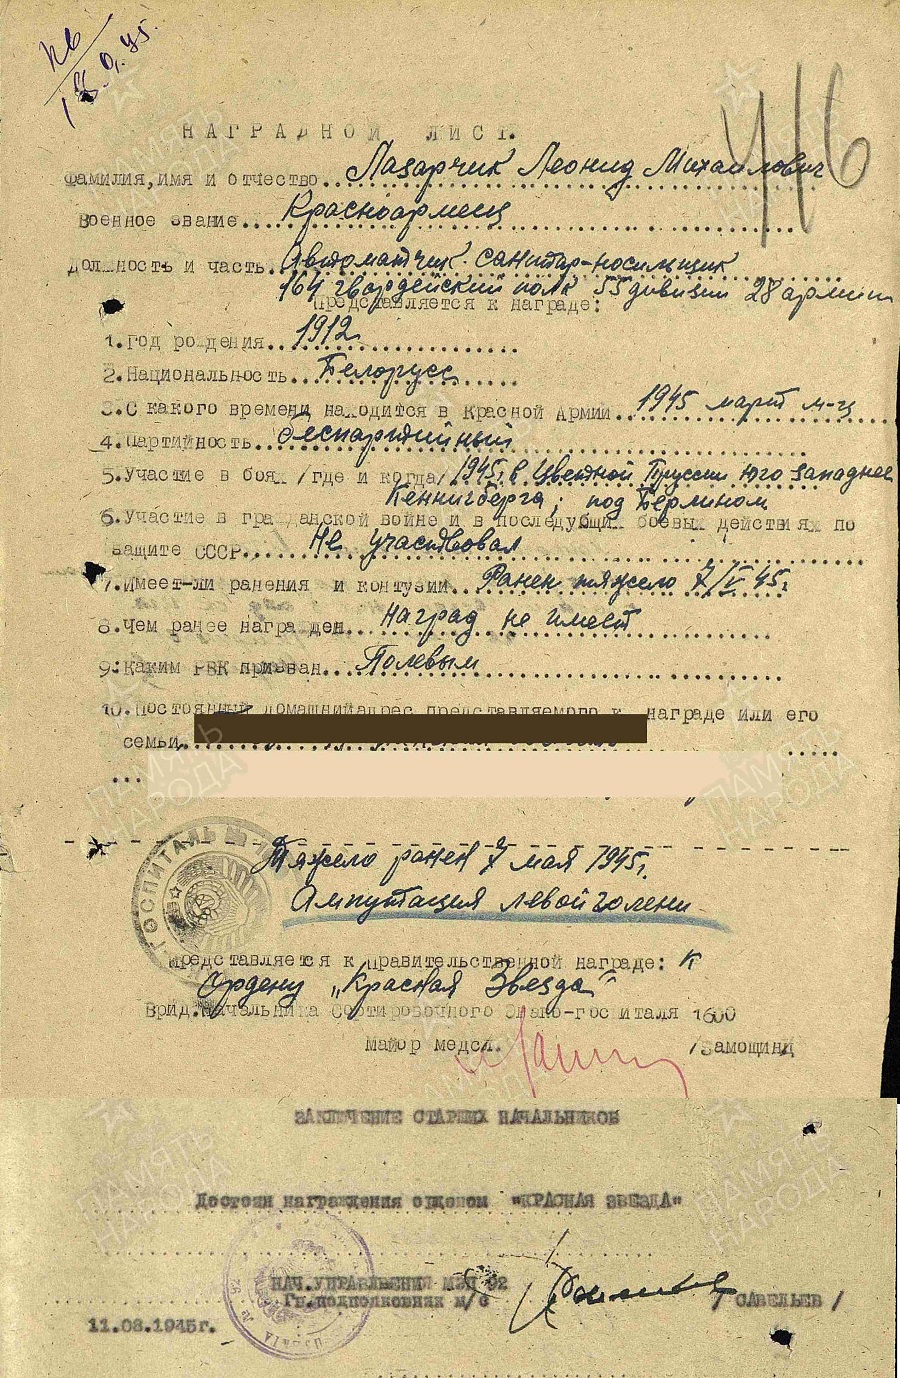 18.9.45.
416
НАГРАДНОЙ ЛИСТ.
Фамилия, имя и отчество... Лазарчик Леонид Михайлович
Военное звание... Красноармеец
Должность и часть. Автоматчик. санитар-носильщик
164 гвардейский полк 55 дивизии 28 армии
Представляется к награде:
1. Год рождения... 1912
2. Национальность... Белорусс
3. С какого времени находится в Красной Армии... 1945 март м-ц
4. Партийность... беспартийный
5. Участие в боях /где и когда/ 1945 г. в Цветной Пруссии юго западнее
Кеннигберга; под Берлином
6. Участие в гражданской войне и в последующих боевых действиях по
защите СССР... Не участвовал
7. Имеет-ли ранения и контузии... Ранен тяжело 7/V 45 г
8. Чем ранее награжден... Наград не имеет
9. Каким РВК призван... Полевым
10. Постоянный домашний адрес представляемого к награде или его
семьи
Тяжело ранен 7 мая 1945 г.
Ампутация левой голени
ГОСПИТАЛЬ
Представляется к правительственной награде: К
Ордену „Красная Звезда“
Врид. Начальника Сортировочного Эвако-госпиталя 1600
Майор медсл. /Замощинд
ЗАКЛЮЧЕНИЕ СТАРШИХ НАЧАЛЬНИКОВ
Достоин награждения орденом "КРАСНАЯ ЗВЕЗДА"
НАЧ. УПРАВЛЕНИЯ МЭП 92
Гв. подполковник м/с / САВЕЛЬЕВ /
11.08.1945г.
ПАМЯТЬ НАРОДА